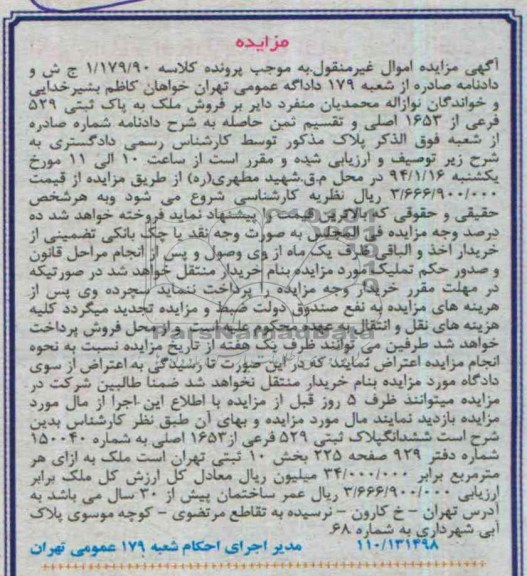 مزایده
آگهی مزایده اموال غیرمنقول.به موجب پرونده کلاسه ۱/۱۷۹/۹۰ ج ش و
دادنامه صادره از شعبه ۱۷۹ داداگه عمومی تهران خواهان کاظم بشیرخدایی
و خواندگان نوازاله محمدیان منفرد دایر بر فروش ملک به پاک ثبتی ۵۲۹
فرعی از ۱۶۵۳ اصلی و تقسیم ثمن حاصله به شرح دادنامه شماره صادره
از شعبه فوق الذکر پلاک مذکور توسط کارشناس رسمی دادگستری به
شرح زیر توصیف و ارزیابی شده و مقرر است از ساعت ۱۰ الی ۱۱ مورخ
یکشنبه ۹۴/۱/۱۶ در محل م.ق.شهید مطهری(ره) از طریق مزایده از قیمت
۳/۶۶۶/۹۰۰/۰۰۰ ریال نظریه کارشناسی شروع می شود وبه هرشخص
حقیقی و حقوقی که بالاترین قیمت را پیشنهاد نماید فروخته خواهد شد ده
درصد وجه مزایده فی المجلس به صورت وجه نقد یا چک بانکی تضمینی از
خریدار اخذ و الباقی ظرف یک ماه از وی وصول و پس از انجام مراحل قانون
و صدور حکم تملیک مورد مزایده بنام خریدار منتقل خواهد شد در صورتیکه
در مهلت مقرر خریدار وجه مزایده را پرداخت ننماید سپرده وی پس از
هزینه های مزایده به نفع صندوق دولت ضبط و مزایده تجدید میگردد کلیه
هزینه های نقل و انتقال به عهده محکوم علیه است و از محل فروش پرداخت
خواهد شد طرفین می توانند ظرف یک هفته از تاریخ مزایده نسبت به نحوه
انجام مزایده اعتراض نمایند که در این صورت تا رسیدگی به اعتراض از سوی
دادگاه مورد مزایده بنام خریدار منتقل نخواهد شد ضمنا طالبین شرکت در
مزایده میتوانند ظرف ۵ روز قبل از مزایده با اطلاع این اجرا از مال مورد
مزایده بازدید نمایند مال مورد مزایده و بهای آن طبق نظر کارشناس بدین
شرح است ششدانگپلاک ثبتی ۵۲۹ فرعی از۱۶۵۳ اصلی به شماره ۱۵۰۰۴۰
شماره دفتر ۹۲۹ صفحه ۲۲۵ بخش ۱۰ ثبتی تهران است ملک به ازای هر
مترمربع برابر ۳۴/۰۰۰/۰۰۰ میلیون ریال معادل کل ارزش کل ملک برابر
ارزیابی ۳/۶۶۶/۹۰۰/۰۰۰ ریال عمر ساختمان پیش از ۳۰ سال می باشد به
آدرس تهران - خ کارون - نرسیده به تقاطع مرتضوی - کوچه موسوی پلاک
آبی شهرداری به شماره ۶۸.
۱۱۰/۱۳۱۴۹۸ مدیر اجرای احکام شعبه ۱۷۹ عمومی تهران